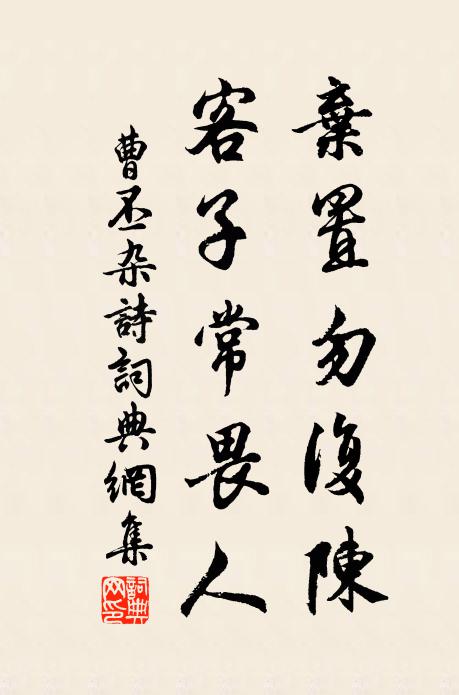 棄置勿復陳
客子常畏人
曹丕杂詩詞典網集
詞典網印